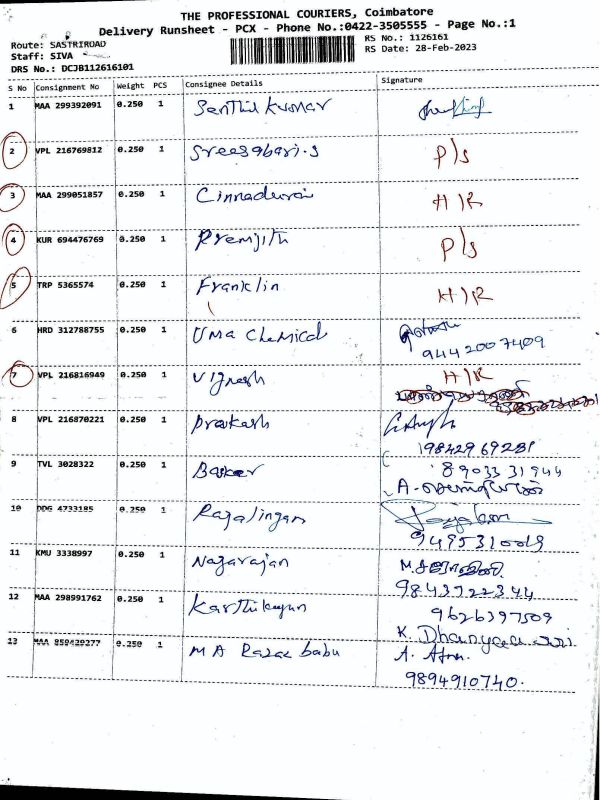 THE PROFESSIONAL COURIERS, Coimbatore
Delivery Runsheet - PCX - Phone No.:0422-3505555 - Page No.:1
Route: SASTRIROAD
Staff: SIVA
DRS No.: DCJB112616101
RS No.: 1126161
RS Date: 28-Feb-2023
S No Consignment No Weight PCS Consignee Details Signature
1 MAA 299392091 0.250 1 Senthil kumar
2 VPL 216769812 0.250 1 Sreesabari.s P/s
3 MAA 299051857 0.250 1 Cinnadurai H)R
4 KUR 694476769 0.250 1 Premjith P/s
5 TRP 5365574 0.250 1 Franklin H)R
6 HRD 312788755 0.250 1 Uma Chemical
9442007409
7 VPL 216816949 0.250 1 Vignesh H)R
8 VPL 216870221 0.250 1 Prakash
9842969281
9 TVL 3028322 0.250 1 Basker 8903331944
10 DDG 4733185 0.250 1 Rajalingam
9495310019
11 KMU 3338997 0.250 1 Nagarajan
9843722344
12 MAA 298991762 0.250 1 Karthikeyan 9626397509
K.
13 MAA 859429277 0.250 1 M A Razac babu A.
9894910740.